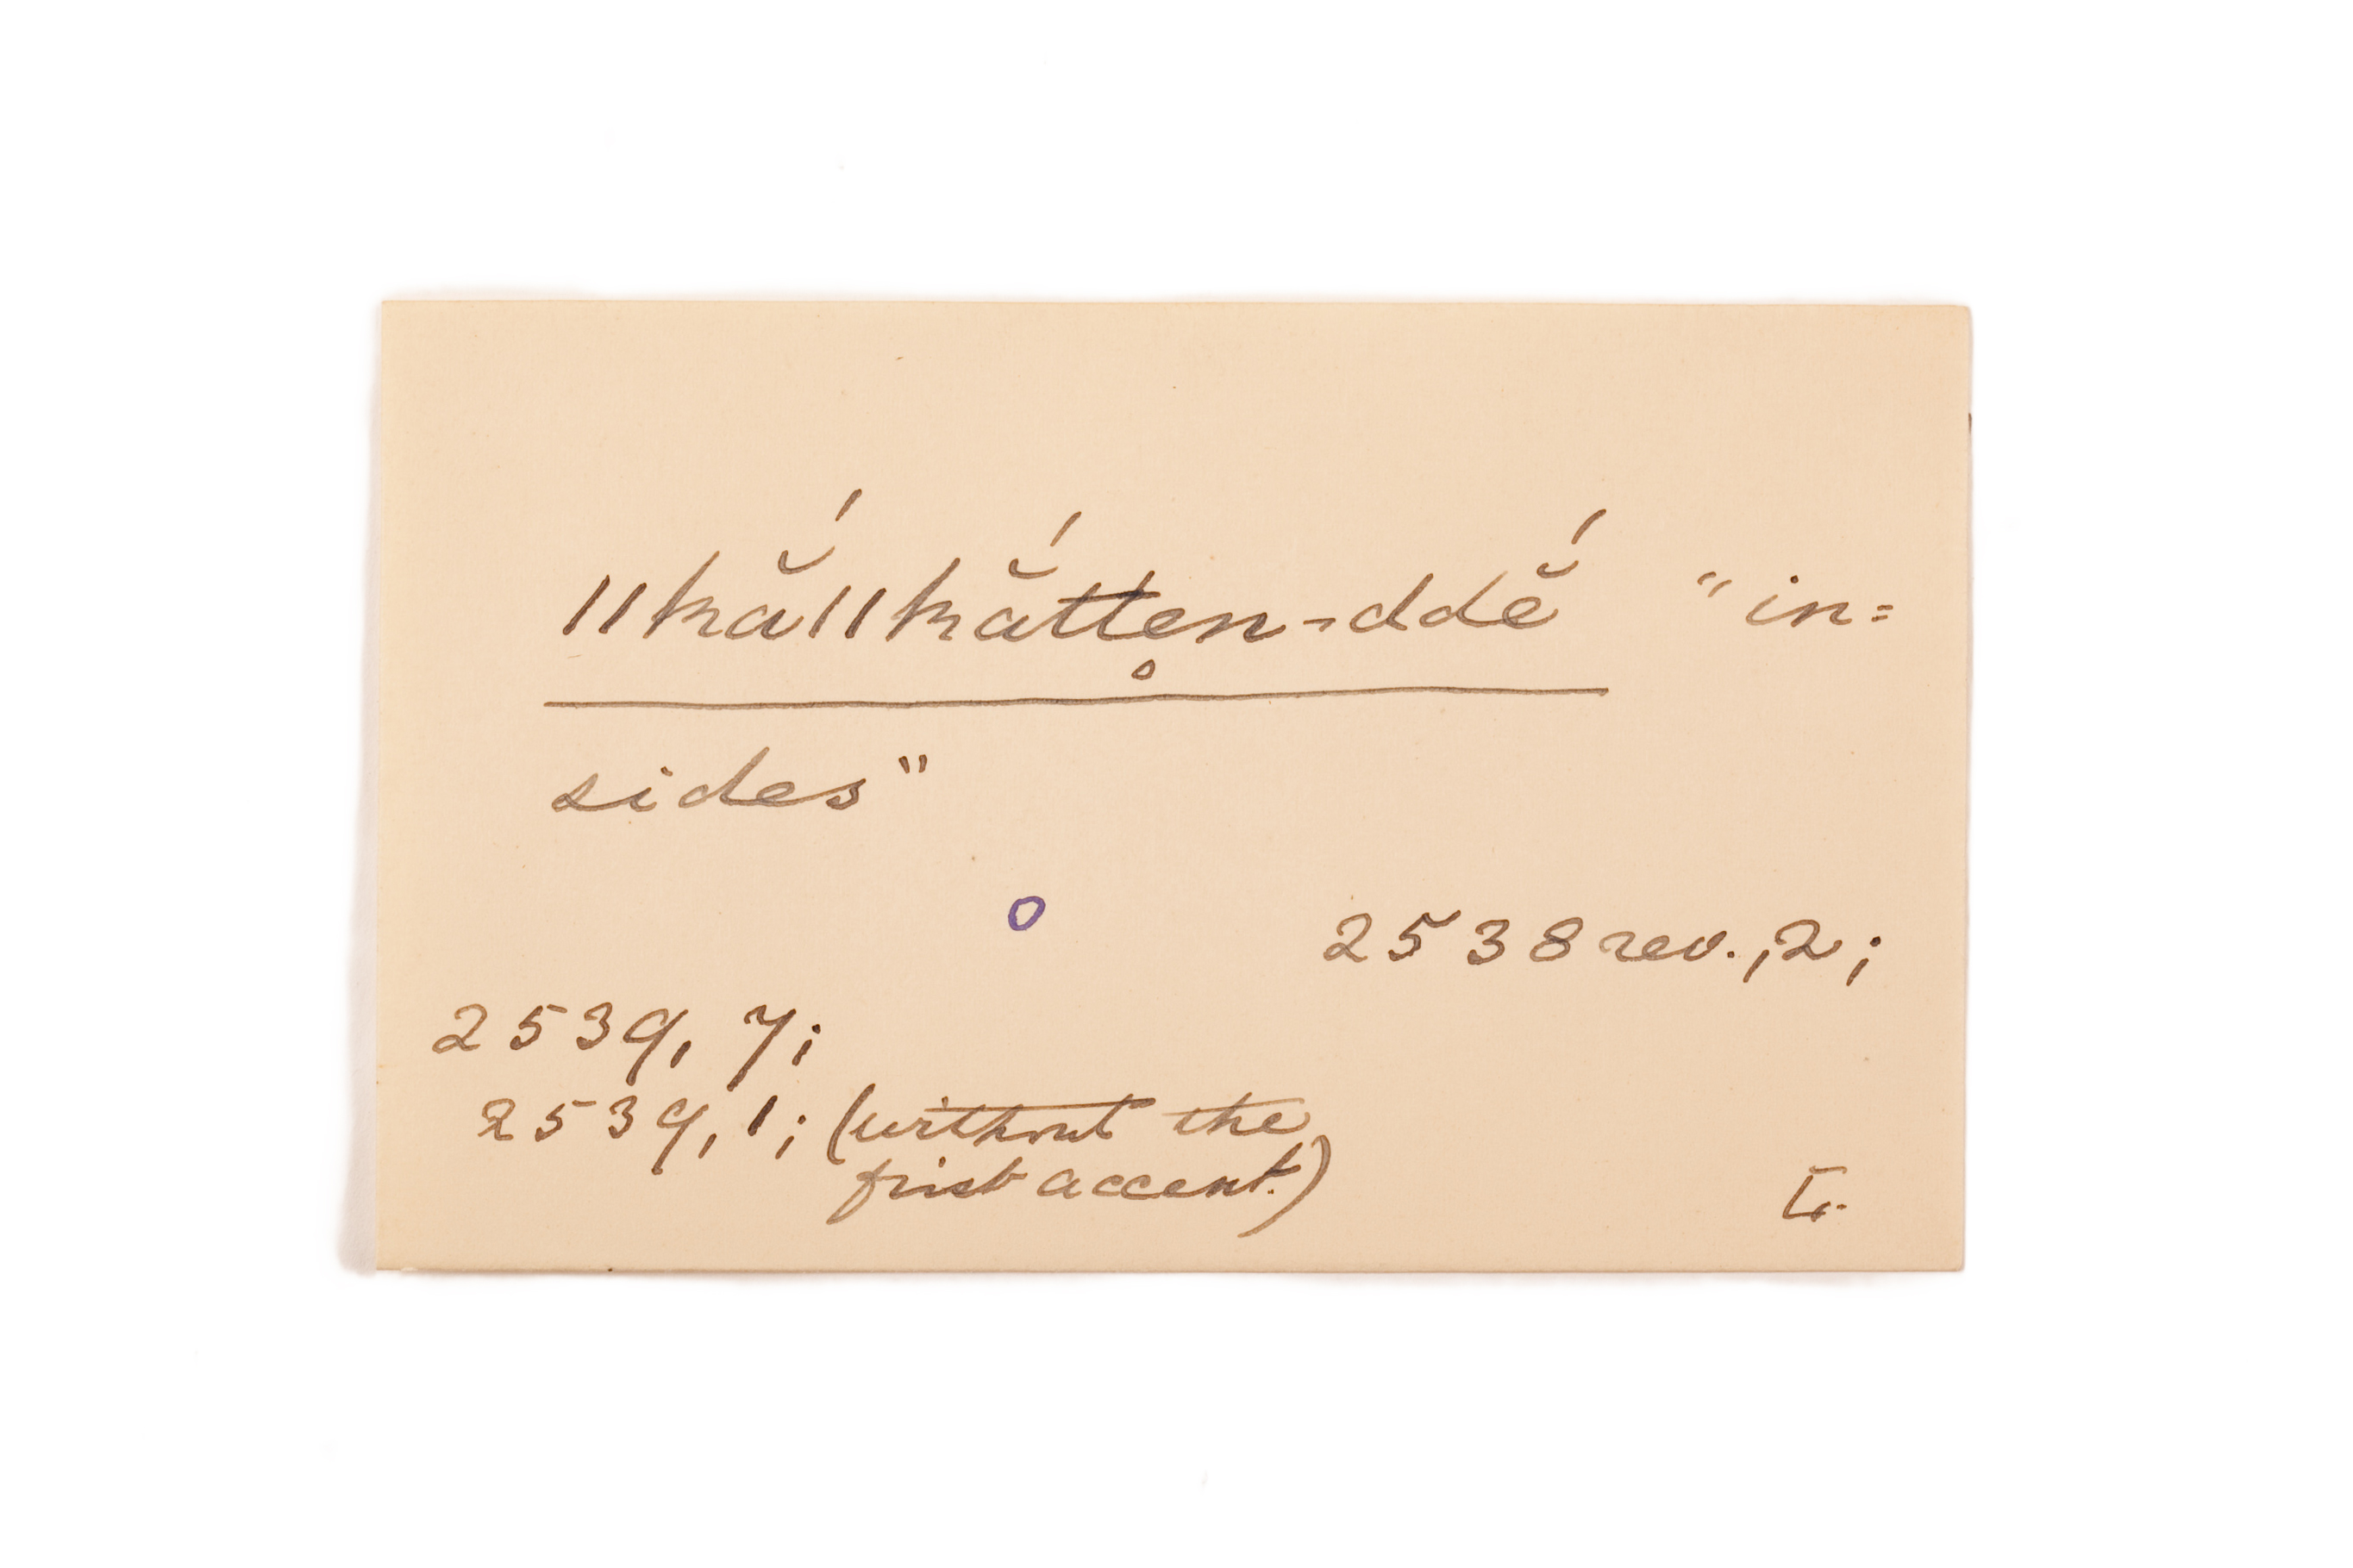 ǁkắǁkắtte̥n-ddĕ́ "in=
sides"
2538 rev., 2;
2539, 7;
2539, 1; (without the
first accent.)